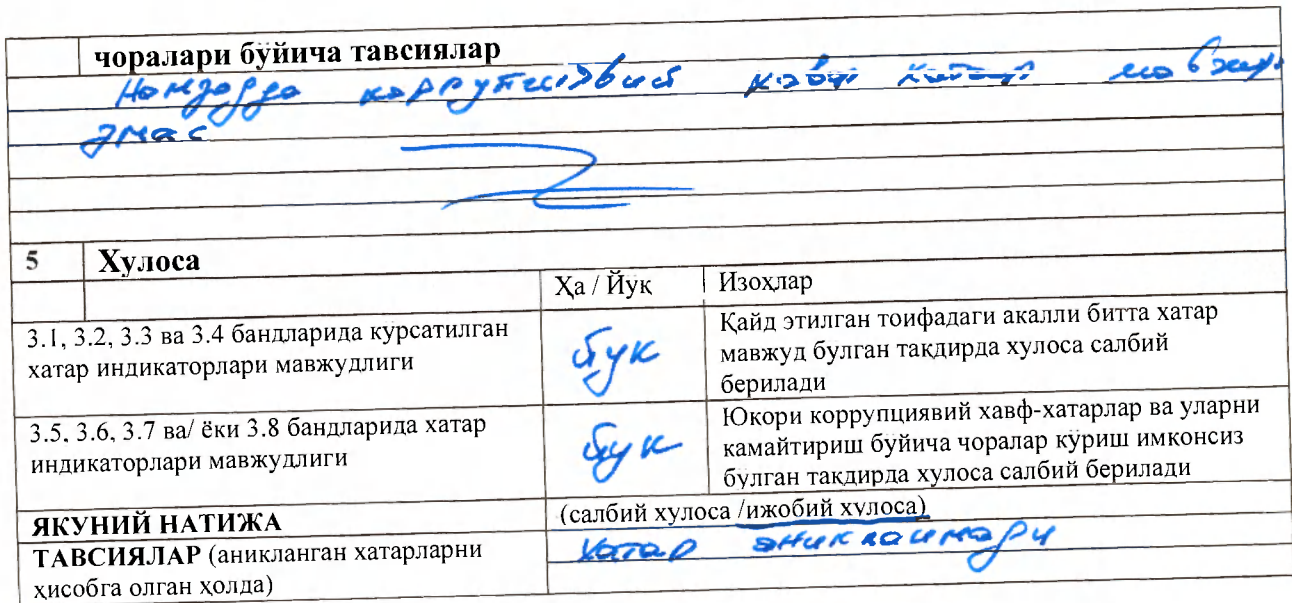 чоралари буйича тавсиялар
Номзодда коррупциявий хавф хатар мавжуд
эмас
5 Хулоса
Ҳа / Йуқ Изоҳлар
3.1, 3.2, 3.3 ва 3.4 бандларида курсатилган
хатар индикаторлари мавжудлиги
йук
Қайд этилган тоифадаги акалли битта хатар
мавжуд булган тақдирда хулоса салбий
берилади
3.5, 3.6, 3.7 ва/ ёки 3.8 бандларида хатар
индикаторлари мавжудлиги
йук
Юкори коррупциявий хавф-хатарлар ва уларни
камайтириш буйича чоралар куриш имконсиз
булган тақдирда хулоса салбий берилади
ЯКУНИЙ НАТИЖА
(салбий хулоса /ижобий хулоса)
ТАВСИЯЛАР (аникланган хатарларни
ҳисобга олган ҳолда)
хатар аникланмади